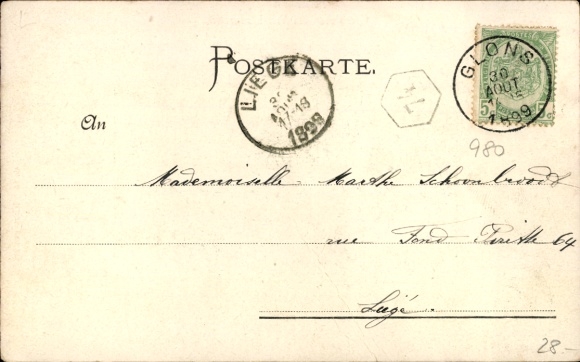 POSTKARTE.
LIÉGE
17-18
1899
GLONS
30
AOUT
1899
5
An
980
Mademoiselle Marthe Schoonbroodt
rue Fond Pirette 64
Liége.
28-